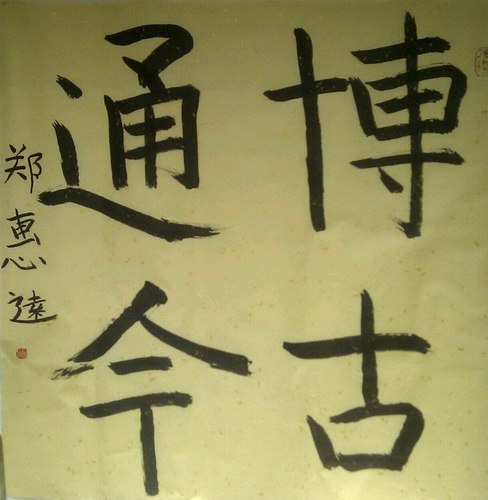 博古
通今
郑惠远